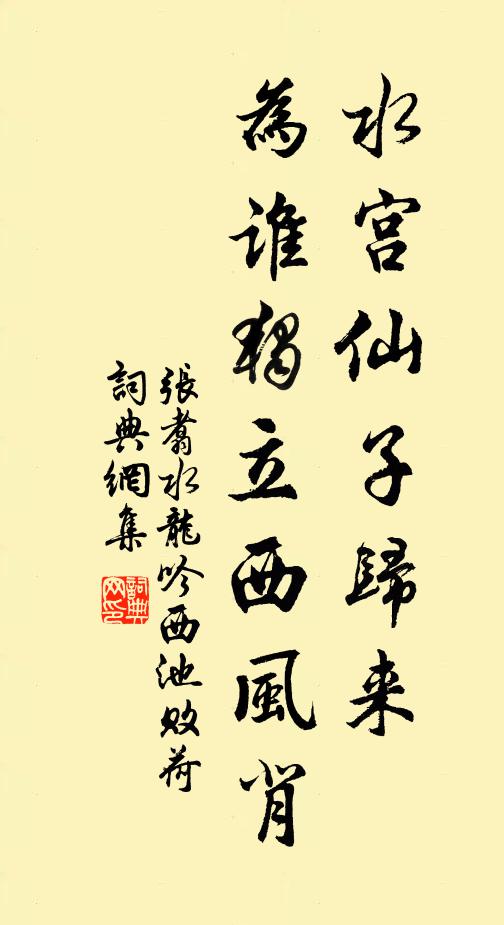 水宮仙子歸来
為誰獨立西風背
張翥水龍吟西池敗荷
詞典網集
詞典网印